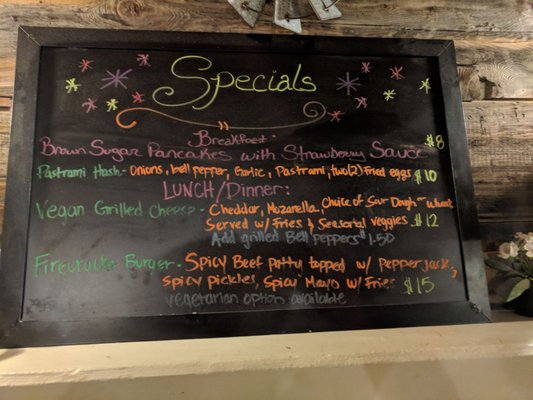 Specials
Breakfast:
Brown Sugar Pancakes with Strawberry Sauce $8
Pastrami Hash - Onions, bell pepper, Garlic, Pastrami, two(2) Fried eggs $10
LUNCH/Dinner:
Vegan Grilled Cheese - Cheddar, Mozarella, Choice of Sour Dough - wheat
Served w/ Fries & Seasonal veggies $12
Add grilled Bell peppers 1.50
Firecracker Burger - Spicy Beef Patty topped w/ Pepperjack,
Spicy pickles, Spicy Mayo w/ Fries $15
vegetarian option available